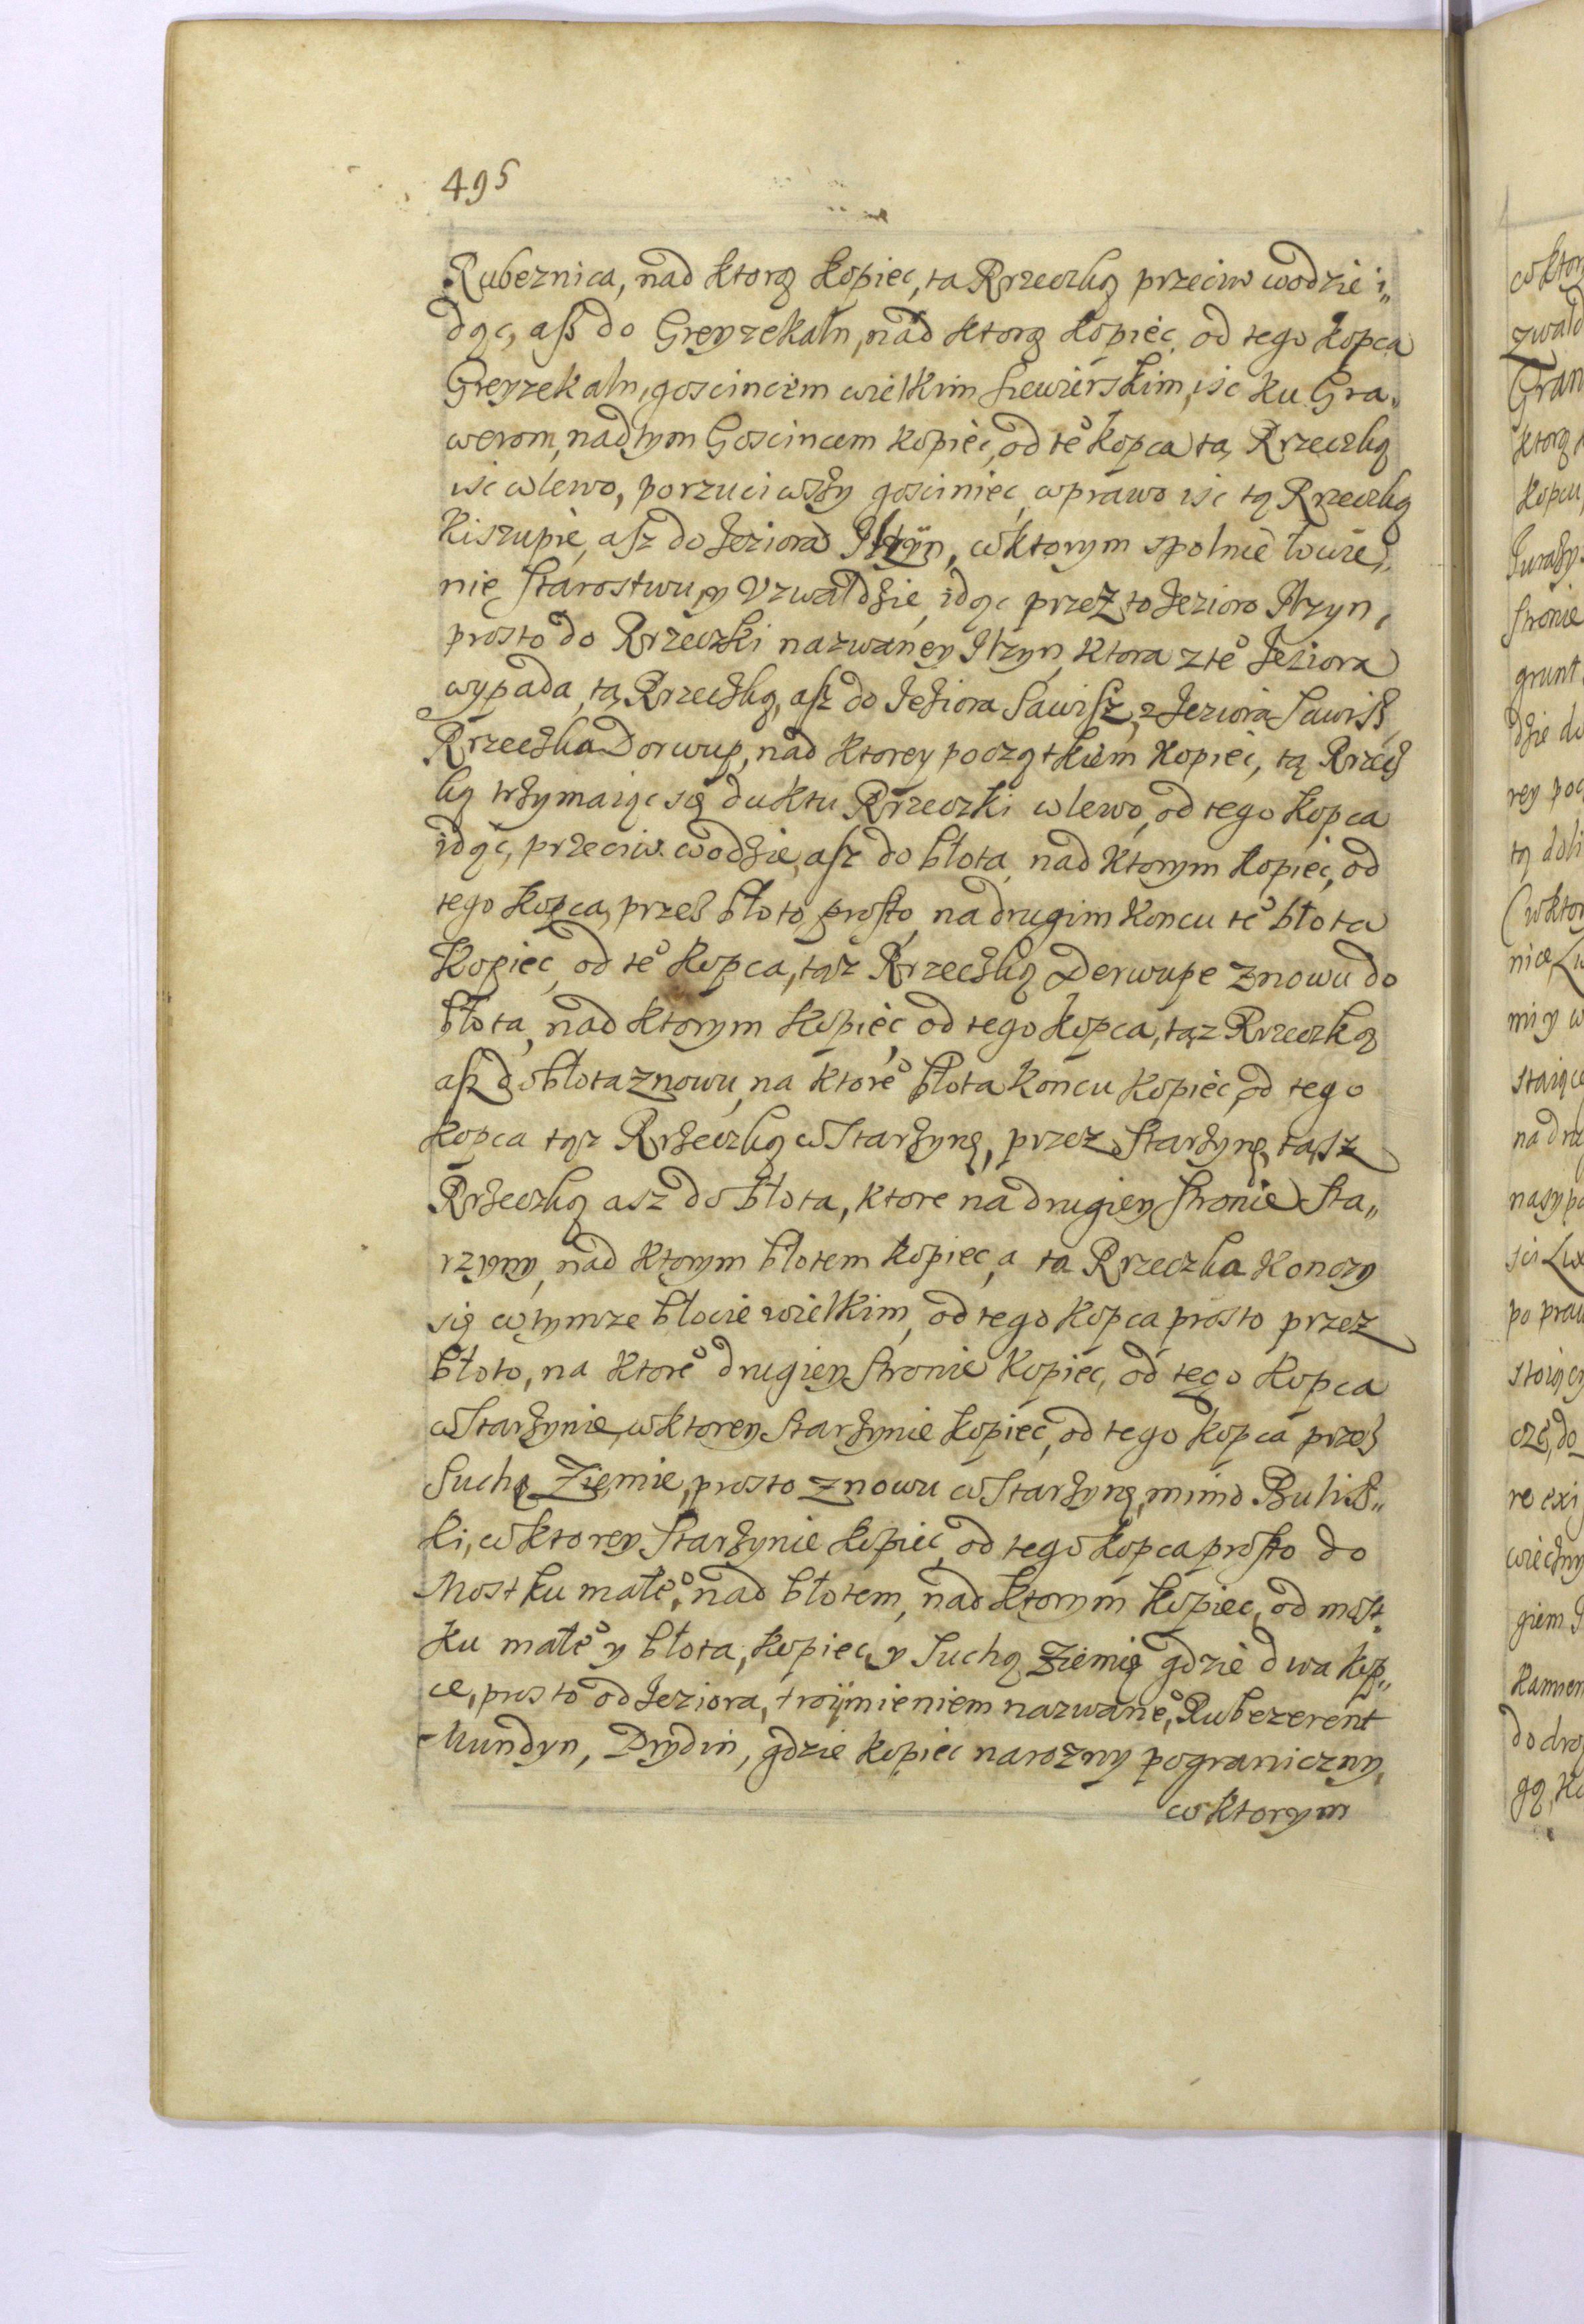 495
Rubeznica, nad ktorą kopiec, ta Rrzeczką przeciw wodzie i„
dąc, asz do Greyzekaln, nad ktorą kopiec, od tego kopca
Greyzekaln, goscincem wielkim Siewierskim, isc ku Gra„
werom, nad tym Goscincem kopiec, od te° kopca tą Rrzeczką
isc w lewo, porzuciwszy gosciniec, w prawo isc tą Rrzeczką
Kiszupie, asz do Jeziora Istzÿn, w ktorym spolnie łowie„
nie Starostwu, y Uzwałdzie, idąc przez to Jezioro Istzyn,
prosto do Rrzeczki nazwaney Istzyn, ktora z te° Jeziora
wypada, tą Rrzeczką, asz do Jeziora Sawisz, z Jeziora Sawisz
Rrzeczka Dorwup, nad ktorey początkiem kopiec, tą Rrzecz
ką trzymaiąc się duktu Rrzeczki w lewo, od tego kopca
idąc, przeciw wodzie, asz do błota, nad ktorym kopiec, od
tego kopca, przez błoto, prosto, na drugim koncu te° błota
kopiec, od te° kopca, tąz Rrzeczką Derwupe znowu do
błota, nad ktorym kopiec, od tego kopca, tąz Rrzeczką
asz do błota znowu, na ktore° błota koncu kopiec, od tego
kopca tąz Rrzeczką w Starzynę, przez Starzynę, tąsz
Rrzeczką asz do błota, ktore na drugiey stronie Sta„
rzyny, nad ktorym błotem kopiec, a ta Rrzeczka konczy
się w tymze błocie wielkim, od tego kopca prosto przez
błoto, na ktore° drugiey stronie kopiec, od tego kopca
w Starzynie, w ktorey Starzynie kopiec, od tego kopca przez
Suchą Ziemie, prosto znowu w Starzynę, mimo Bulisz„
ki, w ktorey Starzynie kopiec, od tego kopca prosto do
Mostku małe°, nad błotem, nad ktorym kopiec, od most„
ku małe° y błota, kopiec, y Suchą Ziemię gdzie dwa kop„
ce, prosto od Jeziora, troÿmieniem nazwane°, Rubezerent
Mundyn, Drydin, gdzie kopiec narozny pograniczny,
w ktorym